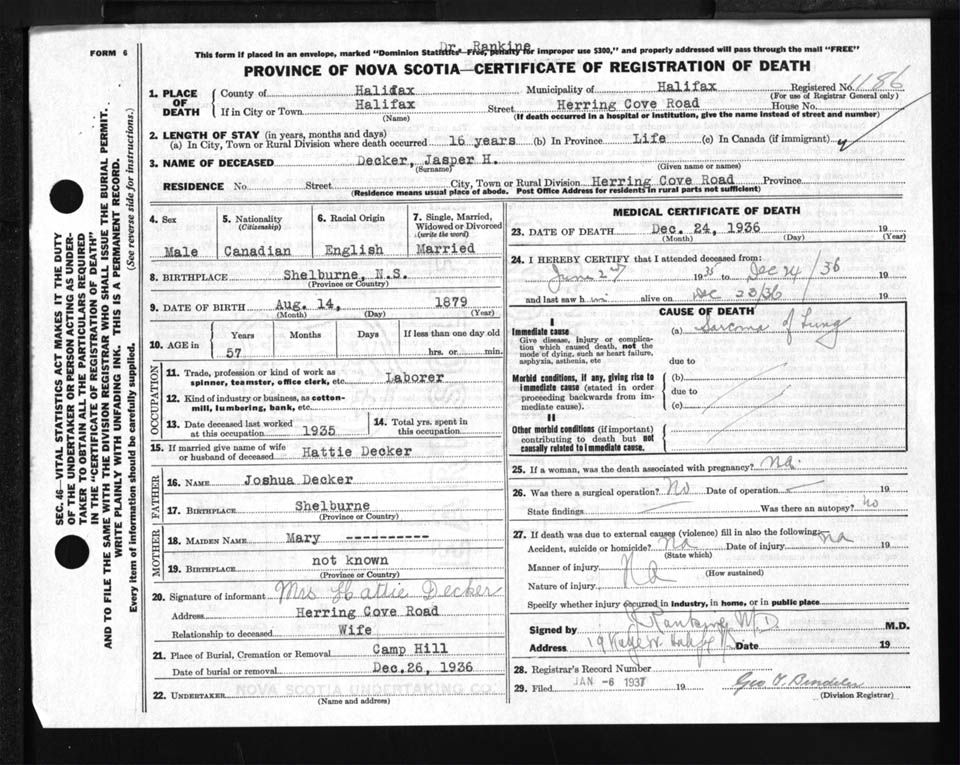 FORM 6
Dr. Rankine
This form if placed in an envelope, marked "Dominion Statistics—Free, penalty for improper use $300," and properly addressed will pass through the mail "FREE"
PROVINCE OF NOVA SCOTIA—CERTIFICATE OF REGISTRATION OF DEATH
1. PLACE OF DEATH
County of Halifax Municipality of Halifax Registered No. 1186
(For use of Registrar General only)
If in City or Town Halifax Street Herring Cove Road House No.
(Name) (If death occurred in a hospital or institution, give the name instead of street and number)
2. LENGTH OF STAY (in years, months and days)
(a) In City, Town or Rural Division where death occurred 16 years (b) In Province Life (c) In Canada (if immigrant)
3. NAME OF DECEASED Decker, Jasper H.
(Surname) (Given name or names)
RESIDENCE No. Street City, Town or Rural Division Herring Cove Road Province
(Residence means usual place of abode. Post Office Address for residents in rural parts not sufficient)
4. Sex Male
5. Nationality (Citizenship) Canadian
6. Racial Origin English
7. Single, Married, Widowed or Divorced (write the word) Married
8. BIRTHPLACE Shelburne, N.S.
(Province or Country)
9. DATE OF BIRTH Aug. 14, 1879
(Month) (Day) (Year)
10. AGE in Years Months Days If less than one day old
57 hrs. or min.
OCCUPATION
11. Trade, profession or kind of work as spinner, teamster, office clerk, etc. Laborer
12. Kind of industry or business, as cotton-mill, lumbering, bank, etc.
13. Date deceased last worked at this occupation 1935
14. Total yrs. spent in this occupation
15. If married give name of wife or husband of deceased Hattie Decker
FATHER
16. NAME Joshua Decker
17. BIRTHPLACE Shelburne
(Province or Country)
MOTHER
18. MAIDEN NAME Mary ----------
19. BIRTHPLACE not known
(Province or Country)
20. Signature of informant Mrs Hattie Decker
Address Herring Cove Road
Relationship to deceased Wife
21. Place of Burial, Cremation or Removal Camp Hill
Date of burial or removal Dec. 26, 1936
22. UNDERTAKER NOVA SCOTIA UNDERTAKING CO.
(Name and address)
MEDICAL CERTIFICATE OF DEATH
23. DATE OF DEATH Dec. 24, 1936 19
(Month) (Day) (Year)
24. I HEREBY CERTIFY that I attended deceased from:
June 27 1935 to Dec 24/36
and last saw him alive on Dec 23/36
CAUSE OF DEATH
I
Immediate cause
Give disease, injury or complication which caused death, not the mode of dying, such as heart failure, asphyxia, asthenia, etc
(a) Sarcoma of Lung
due to
Morbid conditions, if any, giving rise to immediate cause (stated in order proceeding backwards from immediate cause).
(b)
due to
(c)
II
Other morbid conditions (if important) contributing to death but not causally related to immediate cause.
25. If a woman, was the death associated with pregnancy? na.
26. Was there a surgical operation? No Date of operation 19
State findings Was there an autopsy? no
27. If death was due to external causes (violence) fill in also the following: na
Accident, suicide or homicide? Na Date of injury 19
(State which)
Manner of injury Na
(How sustained)
Nature of injury
Specify whether injury occurred in industry, in home, or in public place
Signed by Rankine M.D M.D.
Address 19 Date 19
28. Registrar's Record Number
29. Filed JAN -6 1937 19 Geo
(Division Registrar)
SEC. 46—VITAL STATISTICS ACT MAKES IT THE DUTY
OF THE UNDERTAKER OR PERSON ACTING AS UNDER-
TAKER TO OBTAIN ALL THE PARTICULARS REQUIRED
IN THE "CERTIFICATE OF REGISTRATION OF DEATH"
AND TO FILE THE SAME WITH THE DIVISION REGISTRAR WHO SHALL ISSUE THE BURIAL PERMIT.
WRITE PLAINLY WITH UNFADING INK. THIS IS A PERMANENT RECORD.
Every item of information should be carefully supplied. (See reverse side for instructions.)